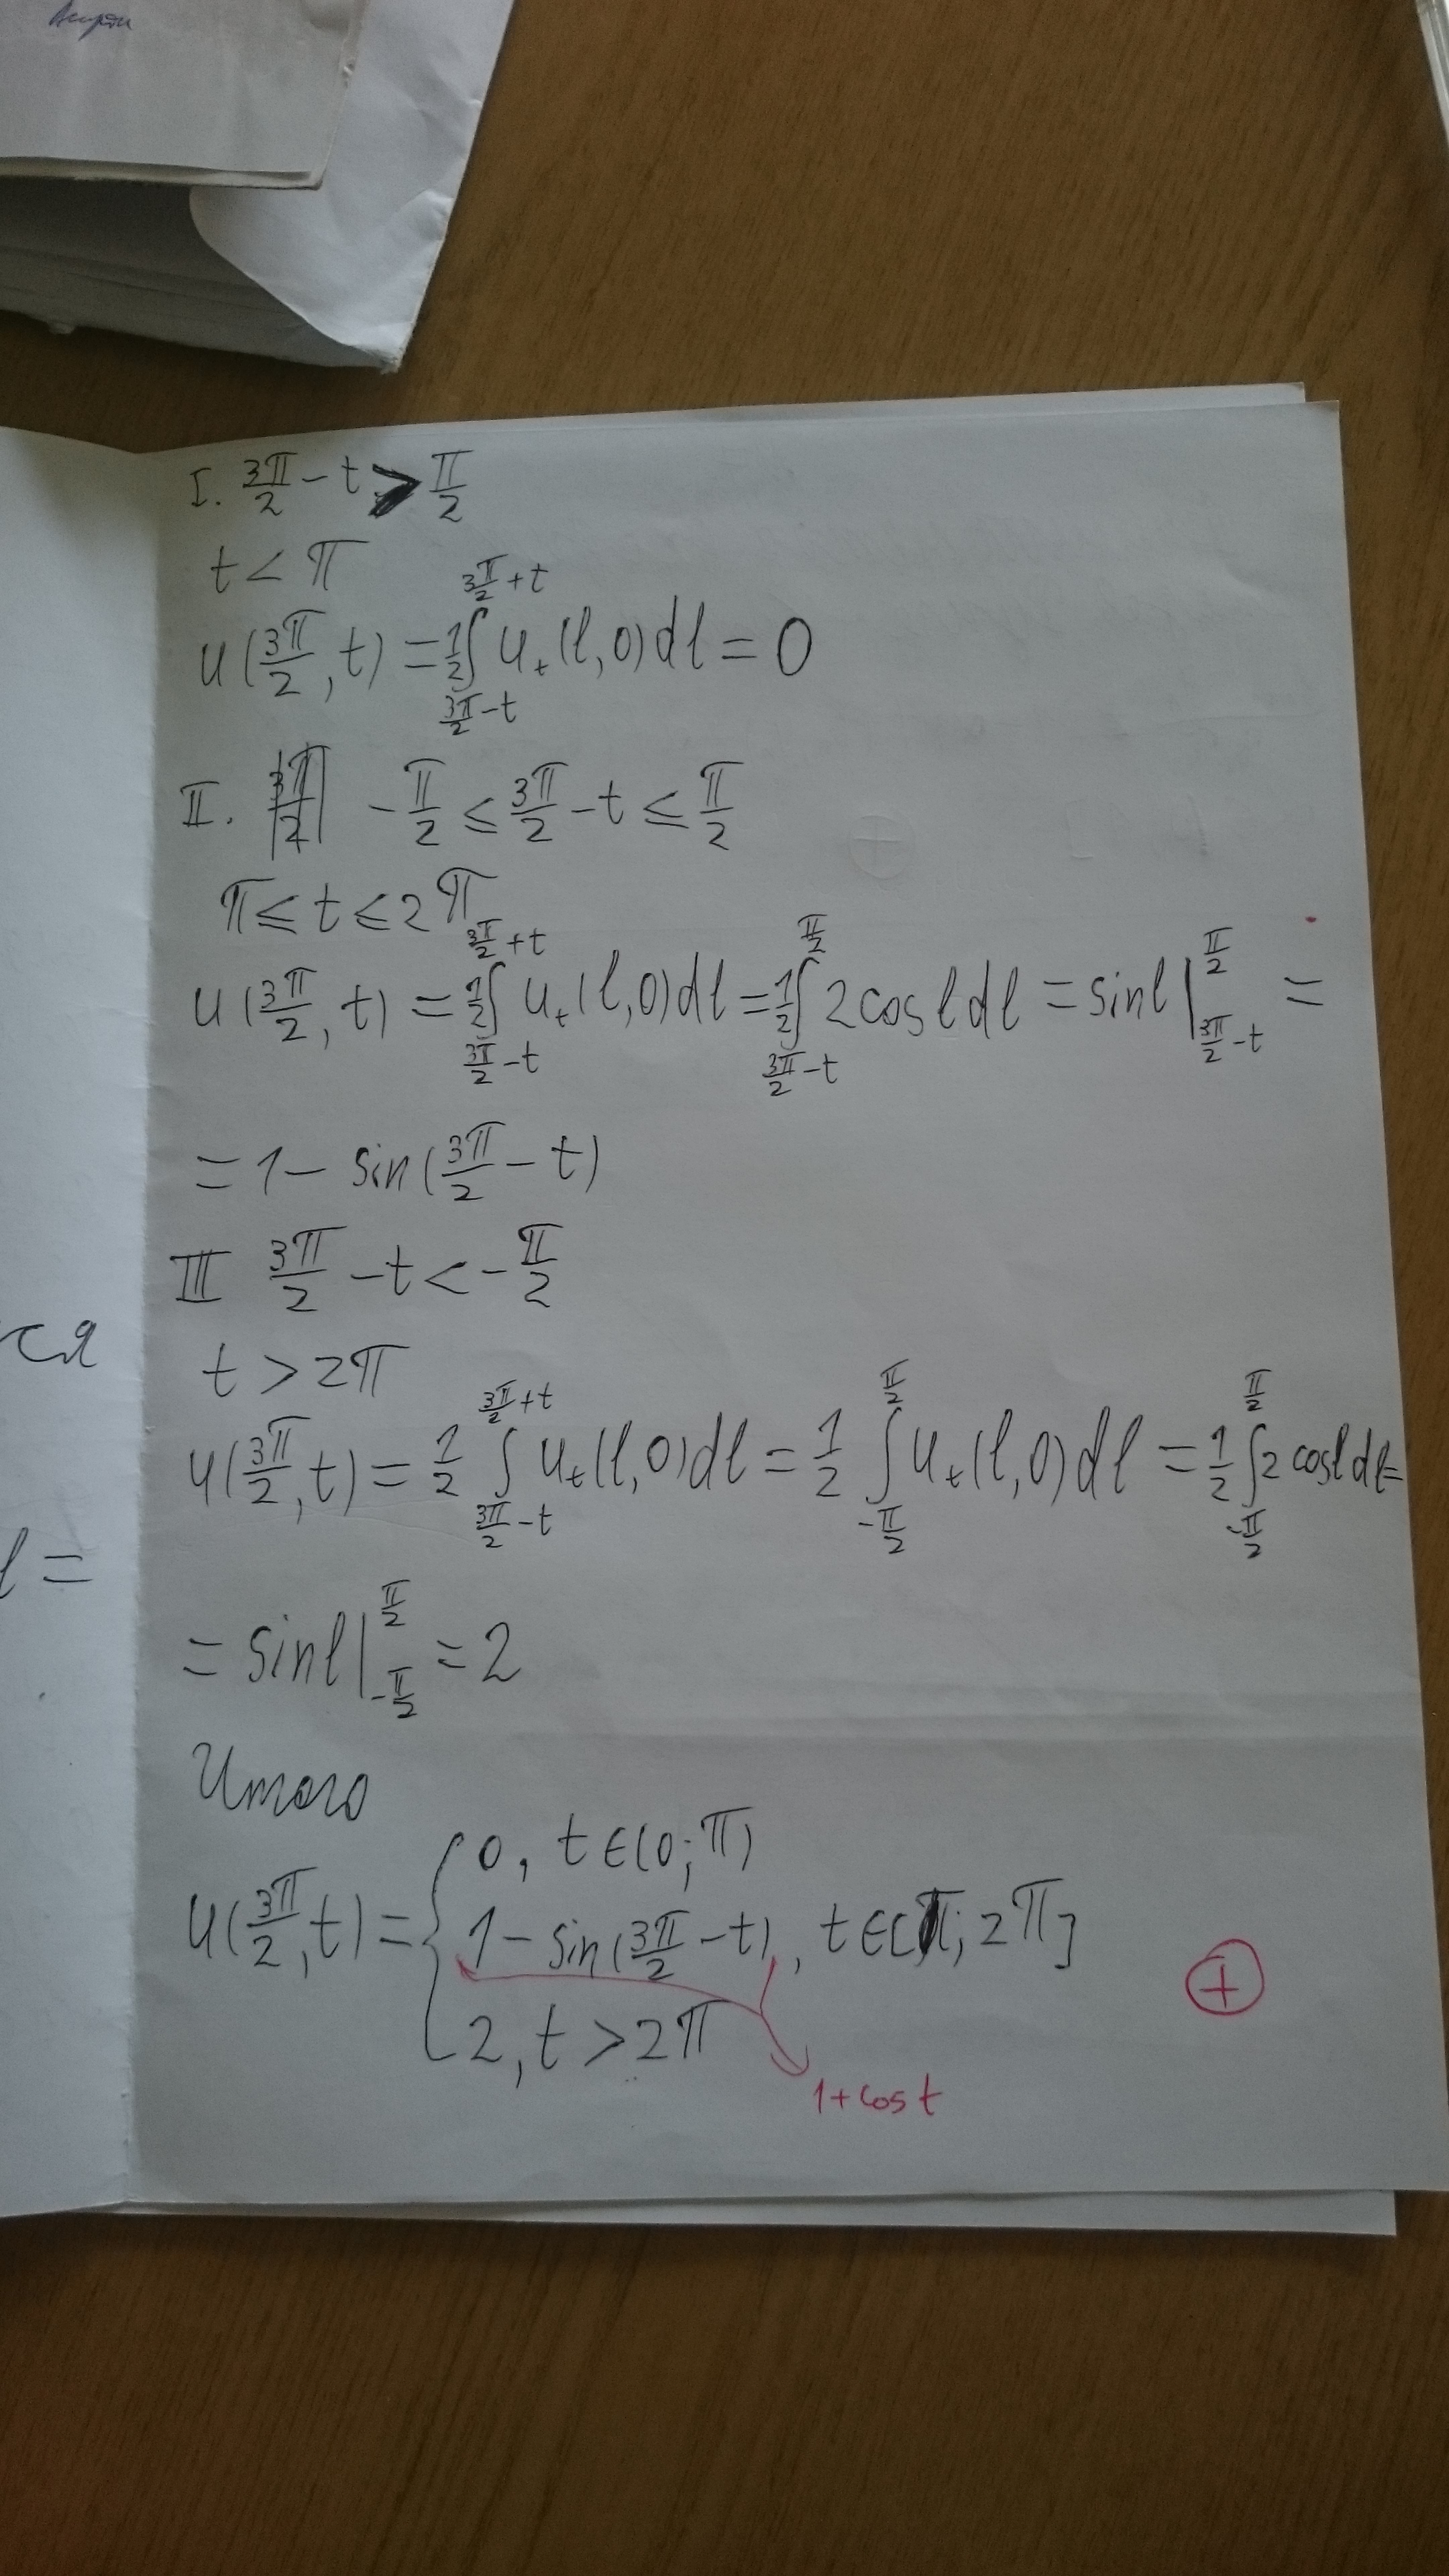 I. 3π/2 − t > π/2
t < π
u(3π/2, t) = 1/2 ∫_{3π/2−t}^{3π/2+t} u_t(l,0)dl = 0
II. −π/2 ≤ 3π/2 − t ≤ π/2
π ≤ t ≤ 2π
u(3π/2, t) = 1/2 ∫_{3π/2−t}^{3π/2+t} u_t(l,0)dl = 1/2 ∫_{3π/2−t}^{π/2} 2cosl dl = sinl |_{3π/2−t}^{π/2} =
= 1 − sin(3π/2 − t)
III 3π/2 − t < −π/2
t > 2π
u(3π/2, t) = 1/2 ∫_{3π/2−t}^{3π/2+t} u_t(l,0)dl = 1/2 ∫_{−π/2}^{π/2} u_t(l,0)dl = 1/2 ∫_{−π/2}^{π/2} 2cosl dl =
= sinl |_{−π/2}^{π/2} = 2
Итого
u(3π/2, t) = {
0, t∈(0;π)
1 − sin(3π/2 − t), t∈[π; 2π]
2, t > 2π
+
1+cos t
ся
l =